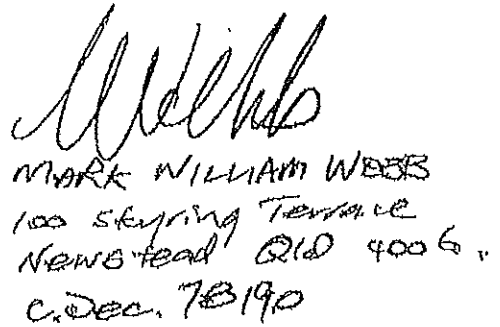 Webb
MARK WILLIAM WEBB
100 Skyring Terrace
Newstead QLD 4006.
C.Dec. 78190